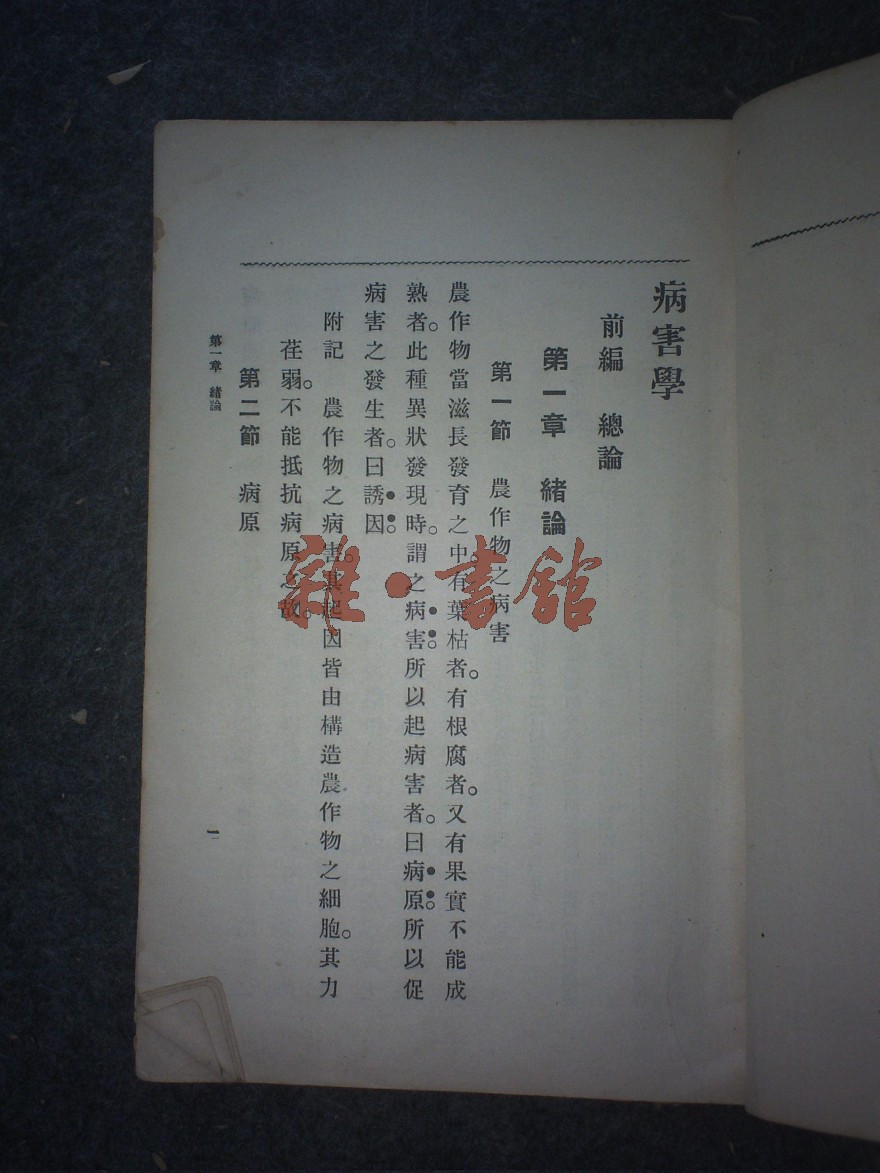 病害學
前編　總論
第一章　緒論
第一節　農作物之病害
農作物當滋長發育之中。有葉枯者。有根腐者。又有果實不能成
熟者。此種異狀發現時。謂之病害。所以起病害者。曰病原。所以促
病害之發生者。曰誘因。
附記　農作物之病害。其起因皆由構造農作物之細胞。其力
荏弱。不能抵抗病原之故。
第二節　病原
第一章　緒論
一
雜·書館